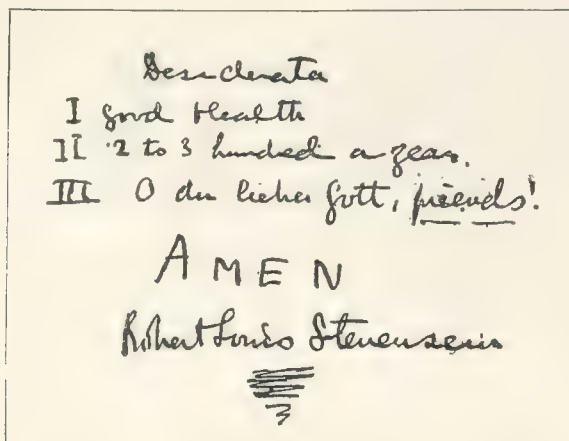 Desiderata
I good Health
II 2 to 3 hundred a year.
III O du lieber Gott, friends!
AMEN
Robert Louis Stevenson